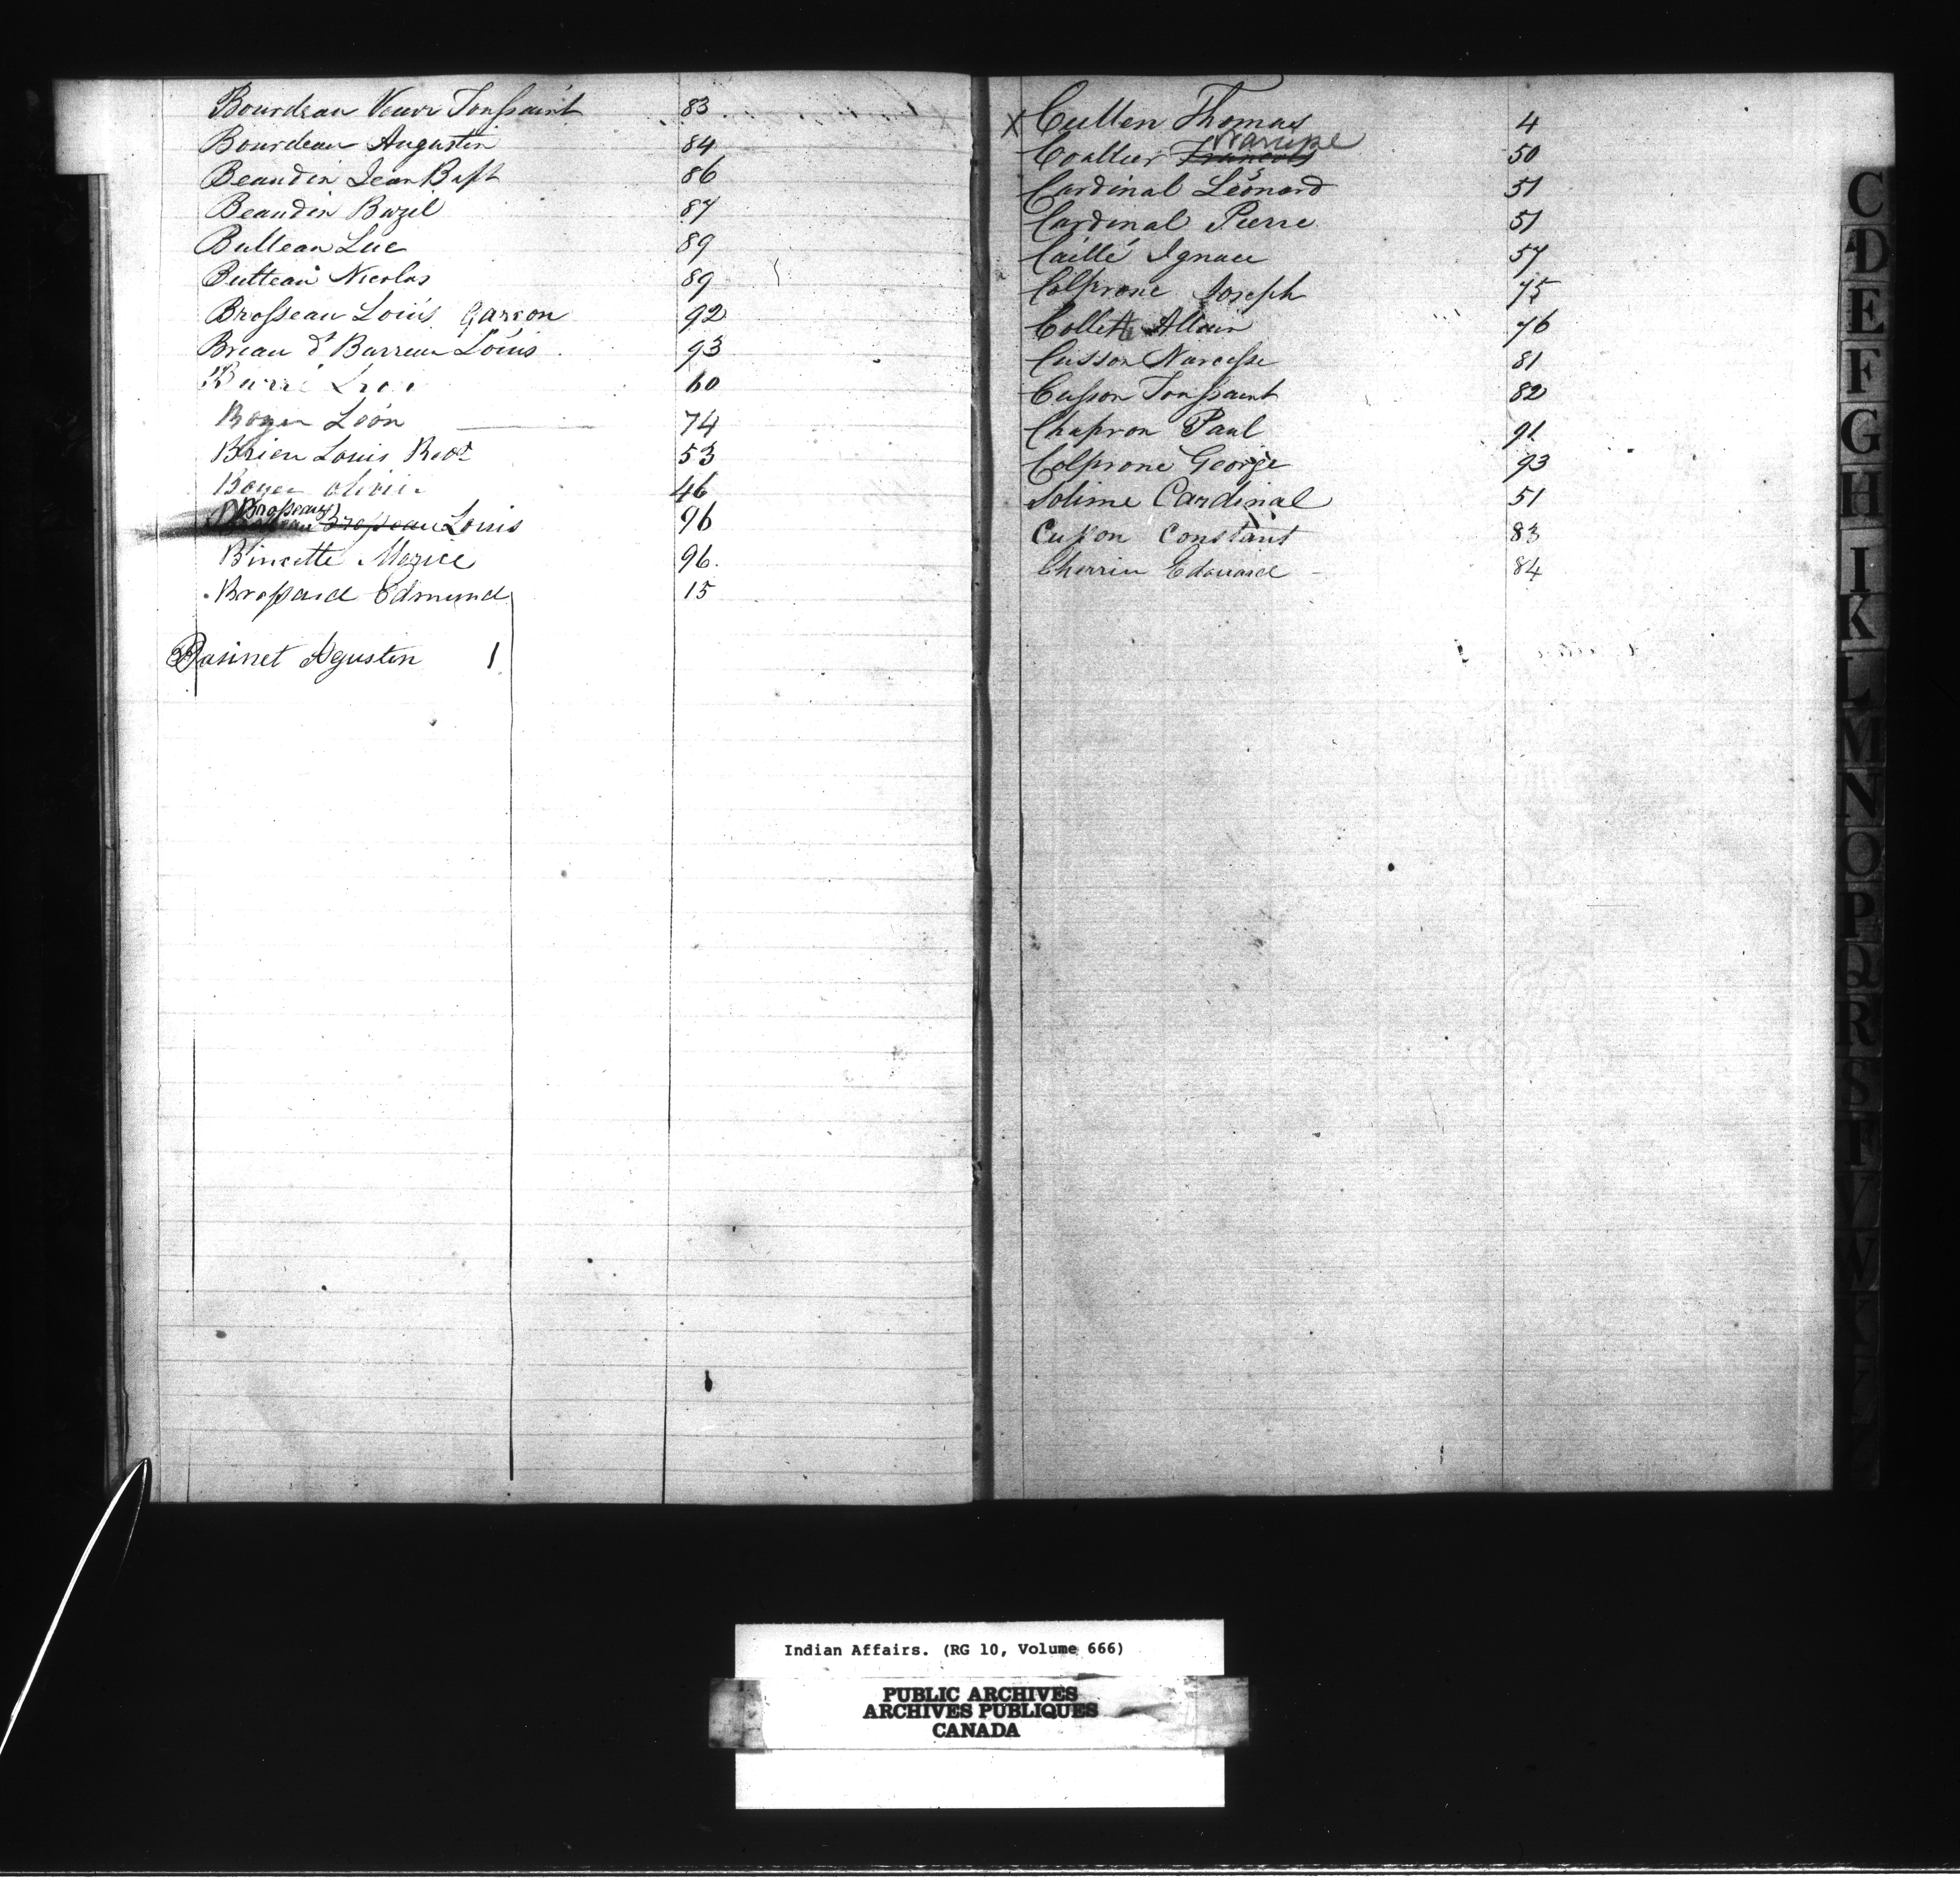 Bourdeau Veuve Toussaint 83
Bourdeau Augustin 84
Beaudin Jean Bapt 86
Beaudin Bazil 87
Bulleau Luc 89
Butteau Nicolas 89
Brosseau Louis Garson 92
Breau dt Barreau Louis 93
Barré 60
Boyer Léon 74
Brien Louis 53
Boyer Olivier 46
Brosseau
Brosseau Louis 96
Bincette 96.
Brossard Edmund 15
Basinet Agustin 1
X Cullen Thomas 4
Narcisse
Coallier Francois 50
Cardinal Léonard 51
Cardinal Pierre 51
Caillé Ignace 57
Colprone Joseph 75
Collette Allain 76
Cusson Narcisse 81
Cusson Toussaint 82
Chapron Paul 91
Colprone George 93
Solime Cardinal 51
Cusson Constant 83
Cherrier Edouard 84
C
D
E
F
G
H
I
K
L
M
N
O
P
Q
R
S
T
V
W
Y
Indian Affairs. (RG 10, Volume 666)
PUBLIC ARCHIVES
ARCHIVES PUBLIQUES
CANADA